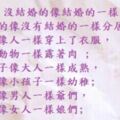 沒結婚的像結婚的一樣
的像沒有結婚的一樣分居
像人一樣穿上了衣服，
動物一樣露著肉；
子像大人一樣成熟，
像小孩子一樣幼稚；
像男人一樣爺們，
像女人一樣娘們；